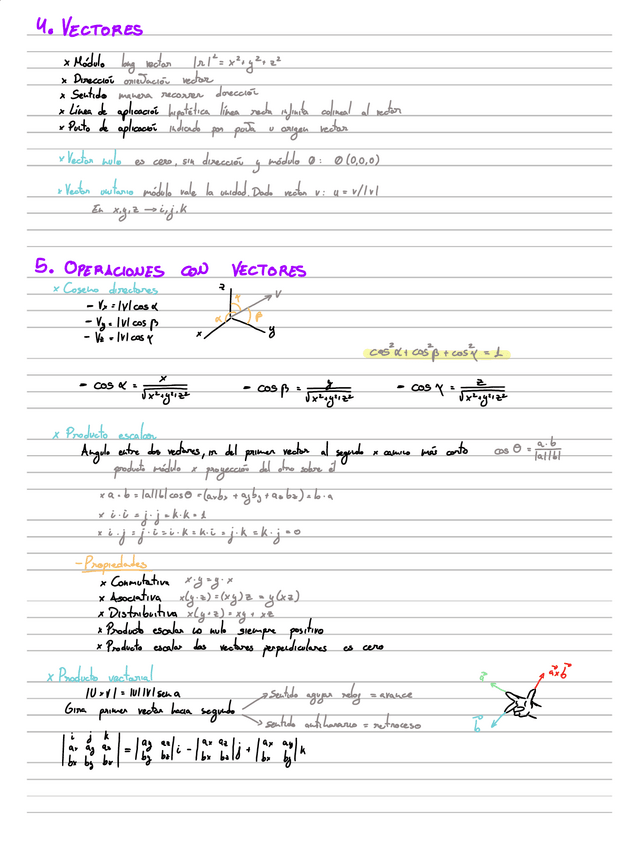 4. VECTORES
x Módulo long vector |r|² = x² + y² + z²
x Dirección orientación vector
x Sentido manera recorrer dirección
x Línea de aplicación hipotética línea recta infinita colineal al vector
x Punto de aplicación indicado por punta u origen vector
x Vector nulo es cero, sin dirección y módulo 0: 0 (0,0,0)
x Vector unitario módulo vale la unidad. Dado vector v: u = v/|v|
En x,y,z → i,j,k
5. OPERACIONES CON VECTORES
x Coseno directores
- Vx = |v| cos α
- Vy = |v| cos β
- Vz = |v| cos γ
z γ V α β x y
cos²α + cos²β + cos²γ = 1
- cos α = x/√x²+y²+z² - cos β = y/√x²+y²+z² - cos γ = z/√x²+y²+z²
x Producto escalar
Angulo entre dos vectores, ir del primer vector al segundo x camino más corto cos θ = a·b/|a||b|
producto módulo x proyección del otro sobre él
x a · b = |a||b| cos θ = (axbx + ayby + azbz) = b · a
x i · i = j · j = k · k = 1
x i · j = j · i = i · k = k · i = j · k = k · j = 0
- Propiedades
x Conmutativa x · y = y · x
x Asociativa x(y·z) = (xy)z = y(xz)
x Distributiva x(y+z) = xy + xz
x Producto escalar no nulo siempre positivo
x Producto escalar dos vectores perpendiculares es cero
x Producto vectorial
|U × V| = |U||V| sen a
Gira primer vector hacia segundo
Sentido agujas reloj = avance
sentido antihorario = retroceso
a⃗ a⃗×b⃗ b⃗
|i j k|
|ax ay az| = |ay az| i - |ax az| j + |ax ay| k
|bx by bz| |by bz| |bx bz| |bx by|